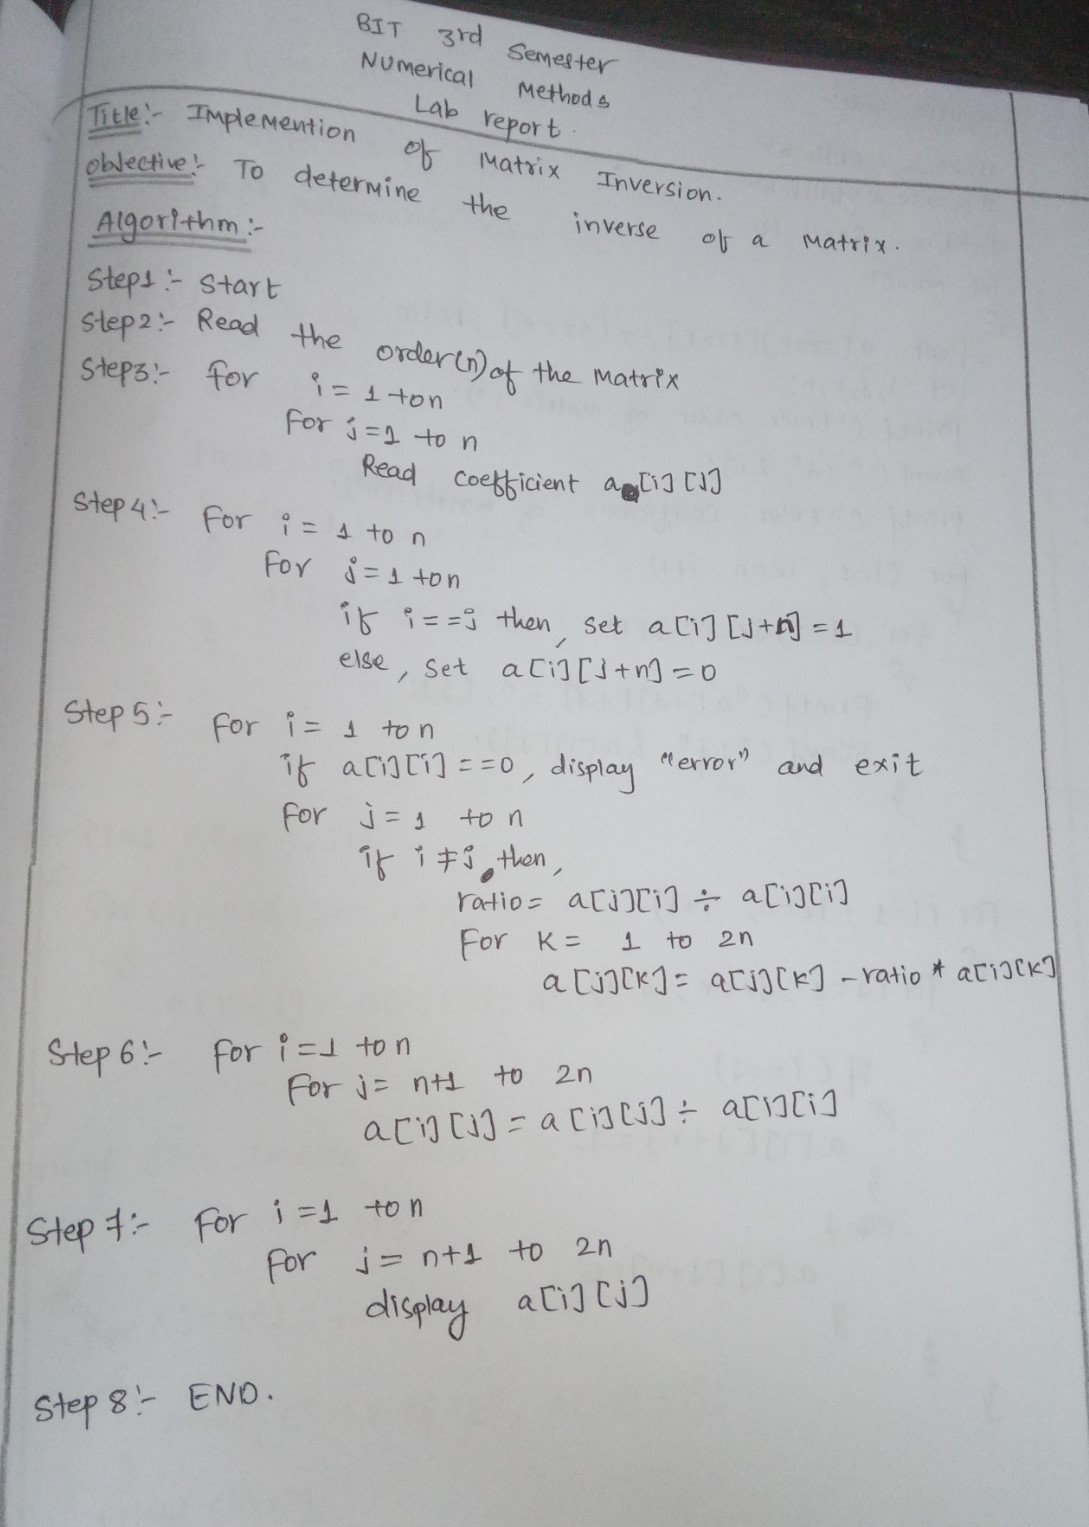 BIT 3rd Semester
Numerical Methods
Lab report.
Title:- Implemention of Matrix Inversion.
Objective:- To determine the inverse of a Matrix.
Algorithm:-
Step1:- Start
Step2:- Read the order(n) of the Matrix
Step3:- for i = 1 to n
For j = 1 to n
Read coefficient a[i][j]
Step 4:- For i = 1 to n
For j = 1 to n
if i == j then, set a[i][j+n] = 1
else, set a[i][j+n] = 0
Step 5:- For i = 1 to n
if a[i][i] == 0, display "error" and exit
For j = 1 to n
if i ≠ j then,
ratio = a[j][i] ÷ a[i][i]
For K = 1 to 2n
a[j][K] = a[j][K] - ratio * a[i][K]
Step 6:- For i = 1 to n
For j = n+1 to 2n
a[i][j] = a[i][j] ÷ a[i][i]
Step 7:- For i = 1 to n
For j = n+1 to 2n
display a[i][j]
Step 8:- END.